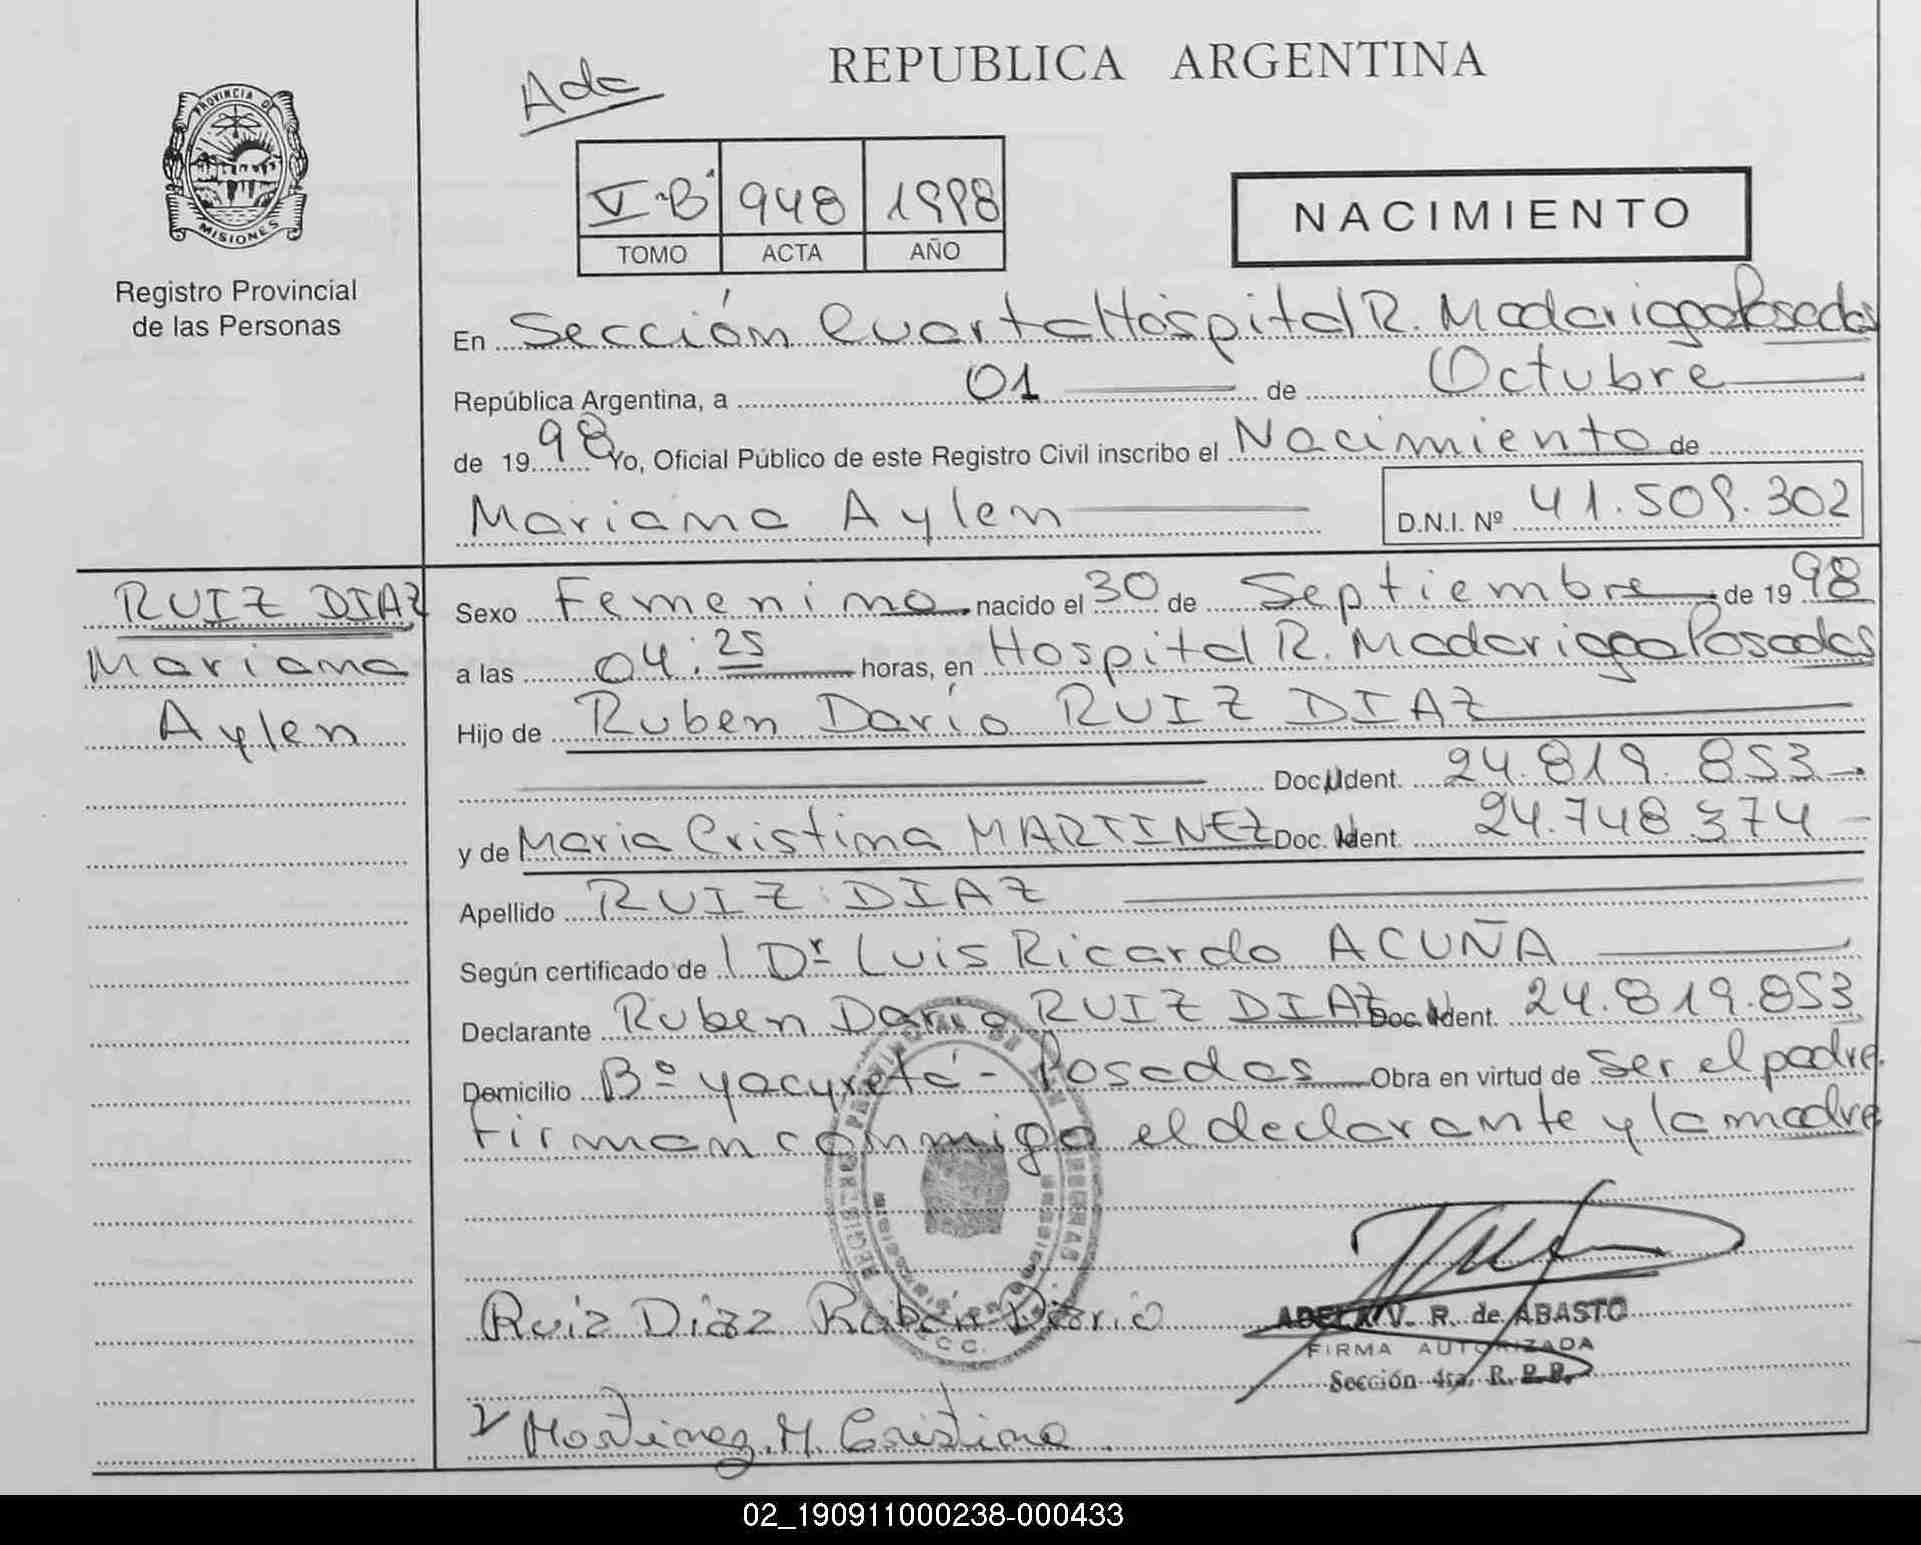 REPUBLICA ARGENTINA
Ada
PROVINCIA DE
MISIONES
Registro Provincial
de las Personas
V-B 948 1998
TOMO ACTA AÑO
NACIMIENTO
En Sección Cuarta Hospital R. Madariaga Posadas
República Argentina, a 01 de Octubre
de 1998 Yo, Oficial Público de este Registro Civil inscribo el Nacimiento de
Mariana Aylen D.N.I. Nº 41.509.302
RUIZ DIAZ
Mariana
Aylen
Sexo Femenino nacido el 30 de Septiembre de 1998
a las 04:25 horas, en Hospital R. Madariaga Posadas
Hijo de Ruben Darío RUIZ DIAZ
Doc. Ident. 24.819.853
y de Maria Cristina MARTINEZ Doc. Ident. 24.748.374
Apellido RUIZ DIAZ
Según certificado de Dr Luis Ricardo ACUÑA
Declarante Ruben Darío RUIZ DIAZ Doc. Ident. 24.819.853
Domicilio Bº yacyretá - Posadas Obra en virtud de ser el padre.
Firman conmigo el declarante y la madre
Ruiz Diaz Rubén Dario
ADELA V. R. de ABASTO
FIRMA AUTORIZADA
Sección 4ta. R. P. P.
Martinez M. Cristina
02_190911000238-000433